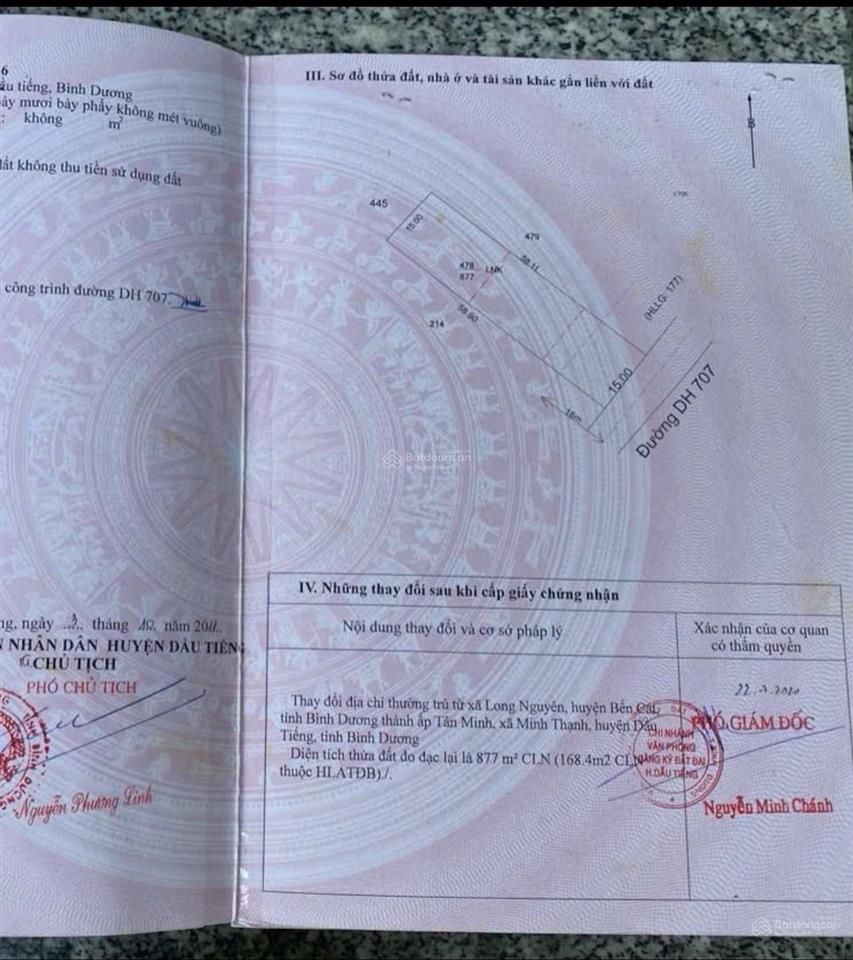 6
ầu tiếng, Bình Dương
ảy mươi bảy phẩy không mét vuông)
: không m²
đất không thu tiền sử dụng đất
công trình đường DH 707.
ng, ngày 2. tháng 10. năm 2011.
N NHÂN DÂN HUYỆN DẦU TIẾNG
CHỦ TỊCH
PHÓ CHỦ TỊCH
Nguyễn Phương Linh
III. Sơ đồ thửa đất, nhà ở và tài sản khác gắn liền với đất
B
445
15.00
479
478
877
LNK
58.11
58.90
214
(HLLG: 177)
15.00
16m
Đường DH 707
Batdongsan
IV. Những thay đổi sau khi cấp giấy chứng nhận
Nội dung thay đổi và cơ sở pháp lý
Xác nhận của cơ quan
có thẩm quyền
Thay đổi địa chỉ thường trú từ xã Long Nguyên, huyện Bến Cát,
tỉnh Bình Dương thành ấp Tân Minh, xã Minh Thạnh, huyện Dầu
Tiếng, tỉnh Bình Dương
Diện tích thửa đất đo đạc lại là 877 m² CLN (168.4m2 CLN
thuộc HLATĐB)./.
22.7.2020
PHÓ GIÁM ĐỐC
CHI NHÁNH
VĂN PHÒNG
ĐĂNG KÝ ĐẤT ĐAI
H.DẦU TIẾNG
Nguyễn Minh Chánh
Batdongsan